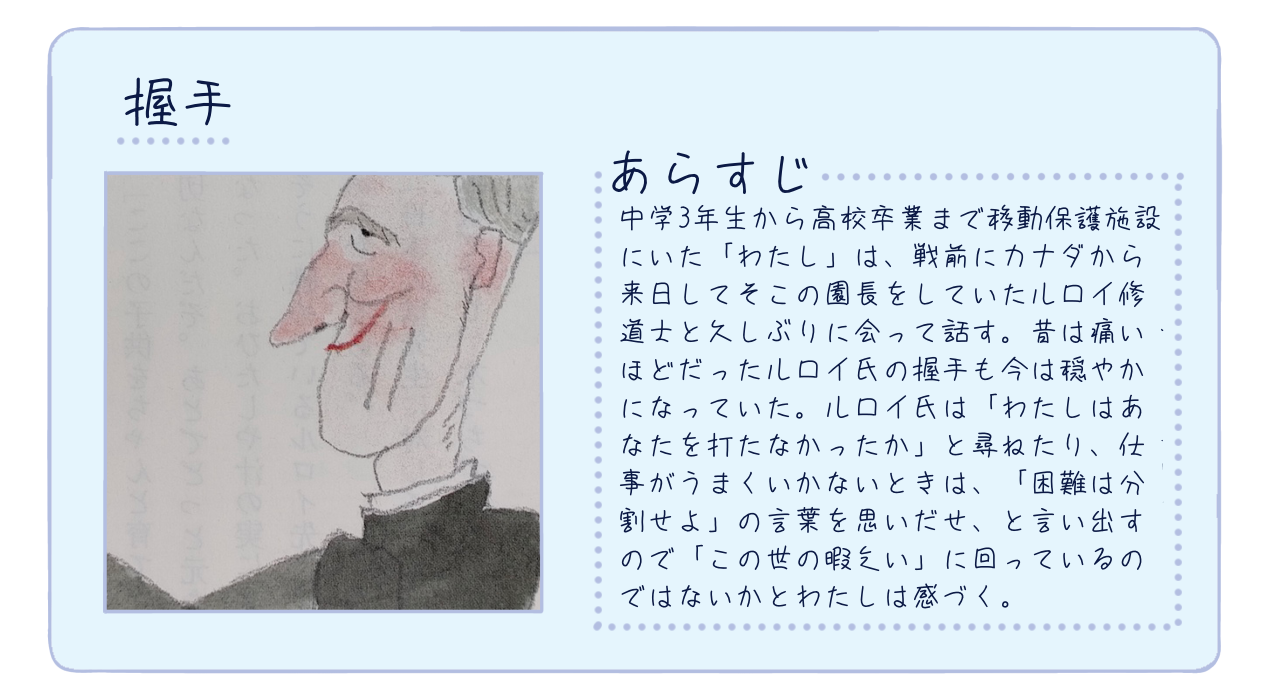 握手
あらすじ
中学3年生から高校卒業まで移動保護施設
にいた「わたし」は、戦前にカナダから
来日してそこの園長をしていたルロイ修
道士と久しぶりに会って話す。昔は痛い
ほどだったルロイ氏の握手も今は穏やか
になっていた。ルロイ氏は「わたしはあ
なたを打たなかったか」と尋ねたり、仕
事がうまくいかないときは、「困難は分
割せよ」の言葉を思いだせ、と言い出す
ので「この世の暇乞い」に回っているの
ではないかとわたしは感づく。